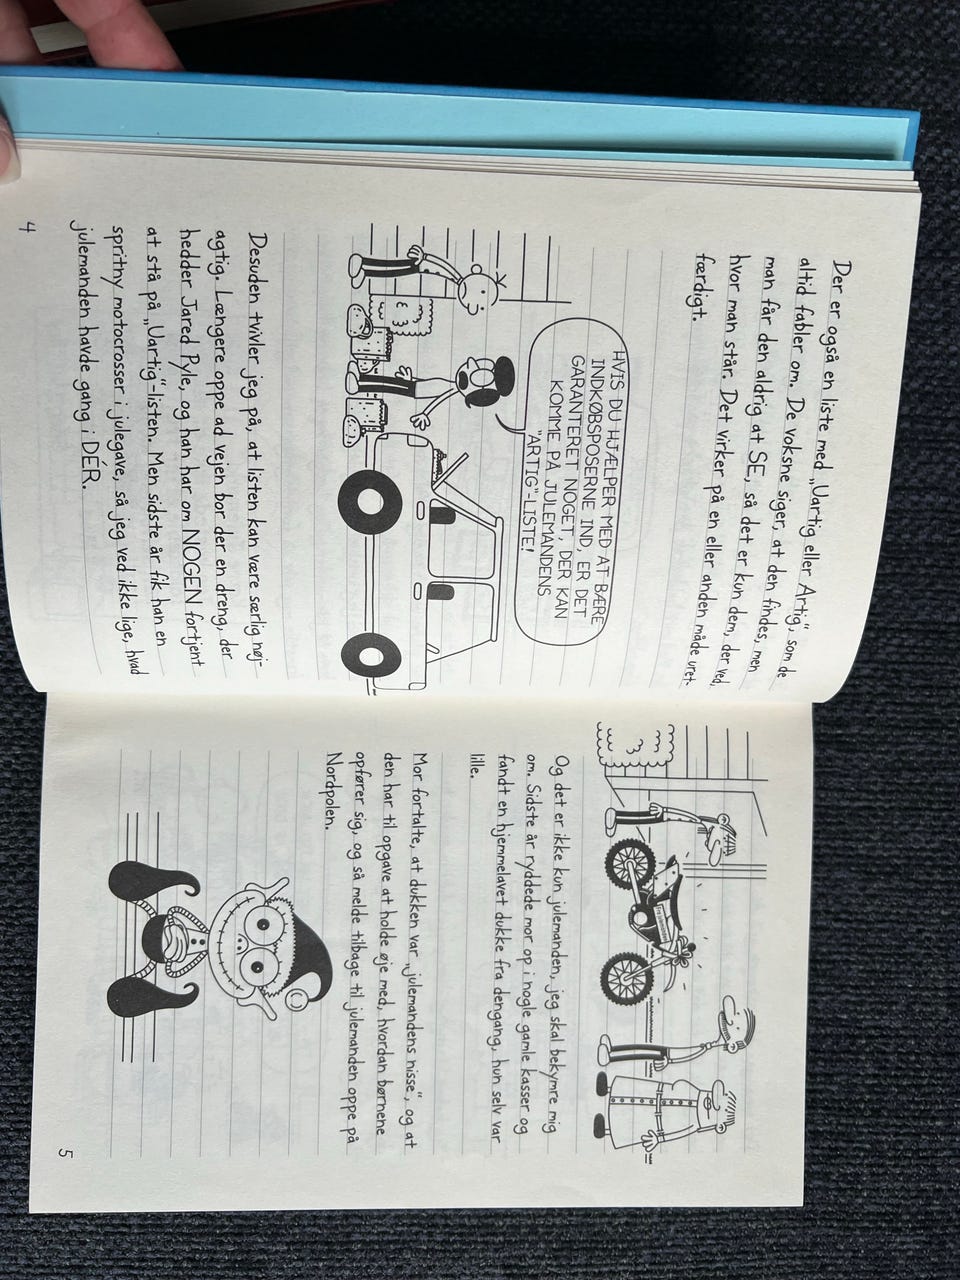 Der er også en liste med „Uartig eller Artig“, som de
altid fabler om. De voksne siger, at den findes, men
man får den aldrig at SE, så det er kun dem, der ved,
hvor man står. Det virker på en eller anden måde uret-
færdigt.
HVIS DU HJÆLPER MED AT BÆRE
INDKØBSPOSERNE IND, ER DET
GARANTERET NOGET, DER KAN
KOMME PÅ JULEMANDENS
"ARTIG"-LISTE!
Desuden tvivler jeg på, at listen kan være særlig nøj-
agtig. Længere oppe ad vejen bor der en dreng, der
hedder Jared Pyle, og han har om NOGEN fortjent
at stå på „Uartig“-listen. Men sidste år fik han en
spritny motocrosser i julegave, så jeg ved ikke lige, hvad
julemanden havde gang i DÉR.
4
Og det er ikke kun julemanden, jeg skal bekymre mig
om. Sidste år ryddede mor op i nogle gamle kasser og
fandt en hjemmelavet dukke fra dengang, hun selv var
lille.
Mor fortalte, at dukken var „julemandens nisse“, og at
den har til opgave at holde øje med, hvordan børnene
opfører sig, og så melde tilbage til julemanden oppe på
Nordpolen.
5